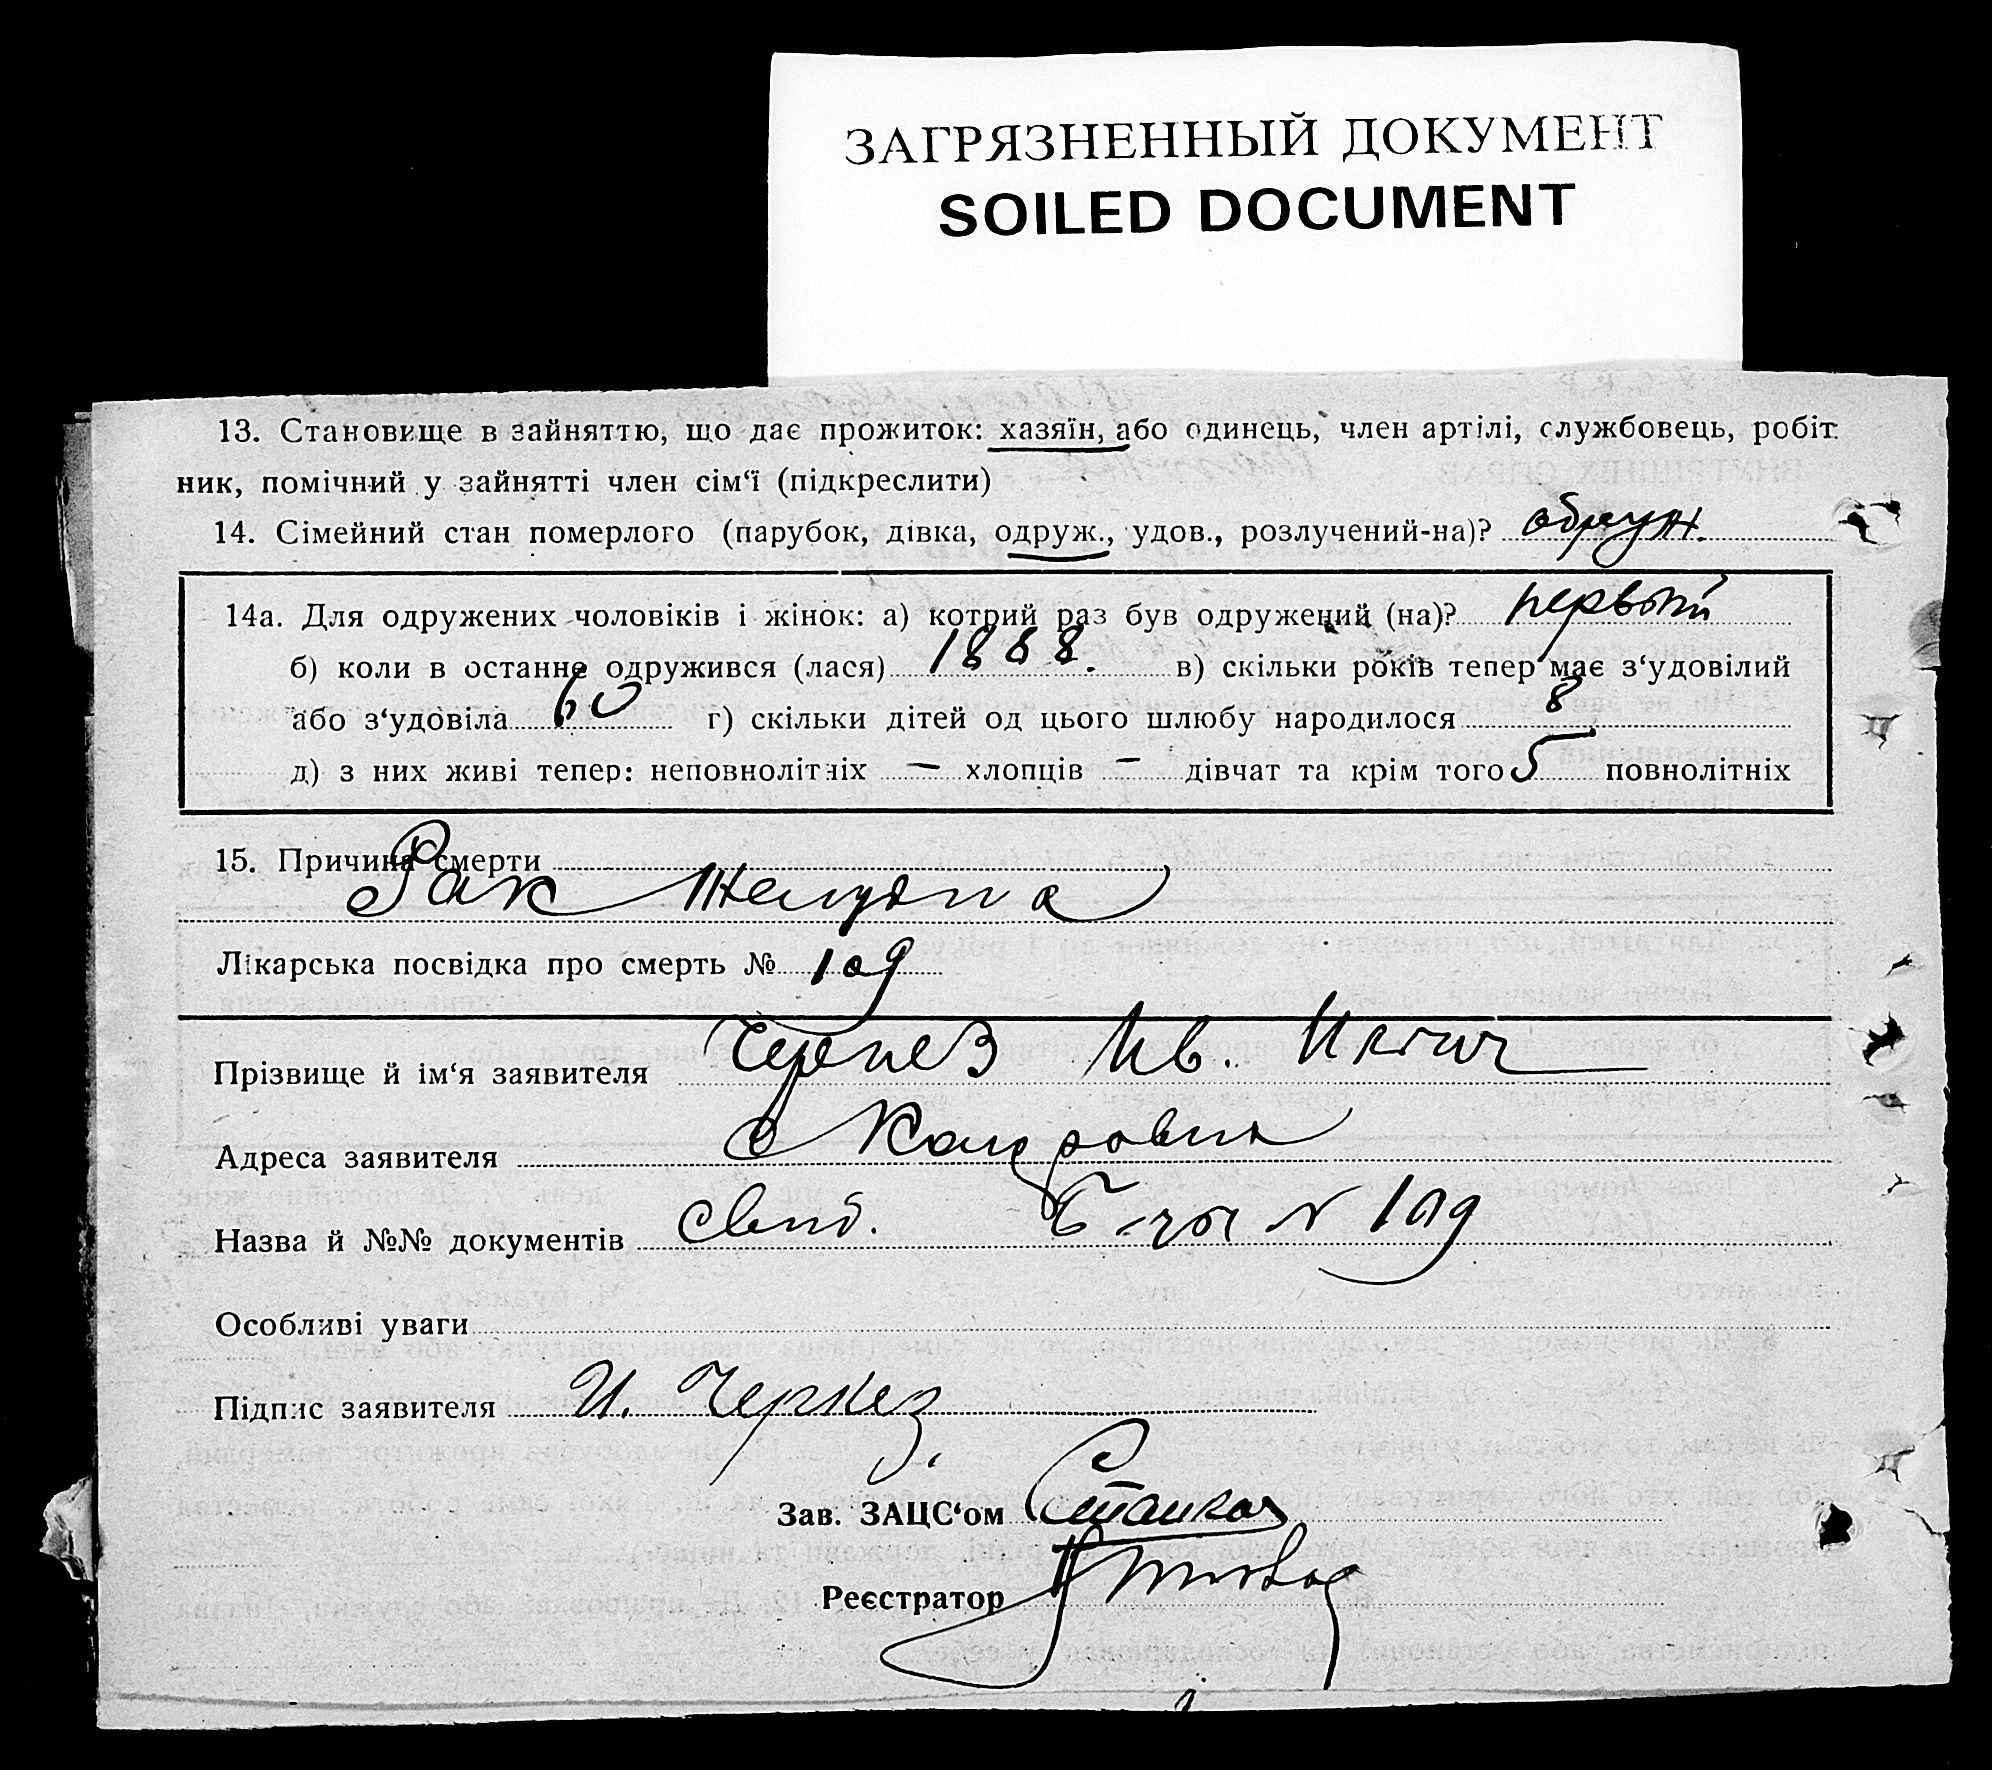 ЗАГРЯЗНЕННЫЙ ДОКУМЕНТ
SOILED DOCUMENT
13. Становище в зайняттю, що дає прожиток: хазяїн, або одинець, член артілі, службовець, робіт
ник, помічний у зайнятті член сім‘ї (підкреслити)
14. Сімейний стан померлого (парубок, дівка, одруж., удов., розлучений-на)? обруж.
14а. Для одружених чоловіків і жінок: а) котрий раз був одружений (на)? первый
б) коли в останнє одружився (лася) 1888. в) скільки років тепер має з‘удовілий
або з‘удовіла 60 г) скільки дітей од цього шлюбу народилося 8
д) з них живі тепер: неповнолітніх — хлопців — дівчат та крім того 5 повнолітніх
15. Причина смерти
Рак желудка
Лікарська посвідка про смерть № 109
Прізвище й ім‘я заявителя Черкез Ив.
Адреса заявителя с
Назва й №№ документів свид. Б-цы № 109
Особливі уваги
Підпис заявителя И. Черкез
Зав. ЗАЦС‘ом
Реєстратор